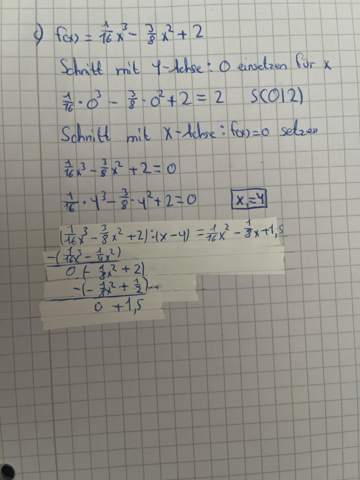 c) f(x) = 1/16 x³ - 3/8 x² + 2
Schnitt mit Y-Achse: 0 einsetzen für x
1/16 · 0³ - 3/8 · 0² + 2 = 2 S(0|2)
Schnitt mit X-Achse: f(x)=0 setzen
1/16 x³ - 3/8 x² + 2 = 0
1/16 · 4³ - 3/8 · 4² + 2 = 0 x₁=4
(1/16 x³ - 3/8 x² + 2) : (x-4) = 1/16 x² - 1/8 x + 1,5
-(1/16 x³ - 1/4 x²)
0 (- 1/8 x² + 2)
-(- 1/8 x² + 1/2)...
0 + 1,5